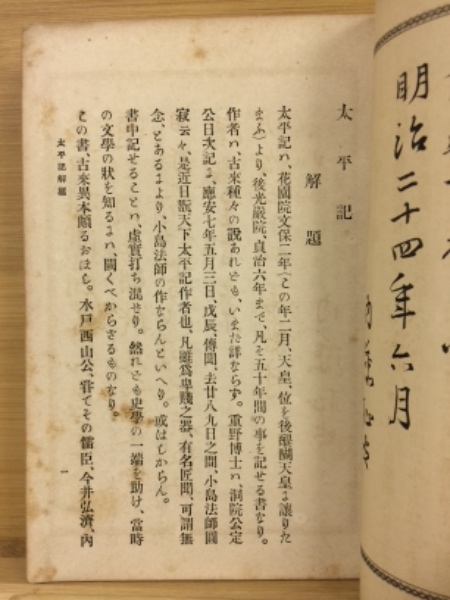 明治二十四年六月
太平記
解題
太平記ハ、花園院文保二年(この年二月、天皇、位を後醍醐天皇に讓りた
まふ)より、後光嚴院、貞治六年まで、凡そ五十年間の事を記せる書なり。
作者ハ、古來種々の說あれども、いまだ詳ならず。重野博士ハ、洞院公定
公日次記に、應安七年五月三日、戊辰、傳聞、去廿八九日之間、小島法師圓
寂云々、是近日翫天下太平記作者也、凡雖爲卑賤之器、有名匠聞、可謂無
念、とあるにより、小島法師の作ならんといへり。或はしからん。
書中記せることハ、虛實打ち混せり。然れども史學の一端を助け、當時
の文學の狀を知るにハ、闕くべからざるものなり。
この書、古來異本頗るおほし。水戶西山公、甞てその儒臣、今井弘濟、內
太平記解題
一